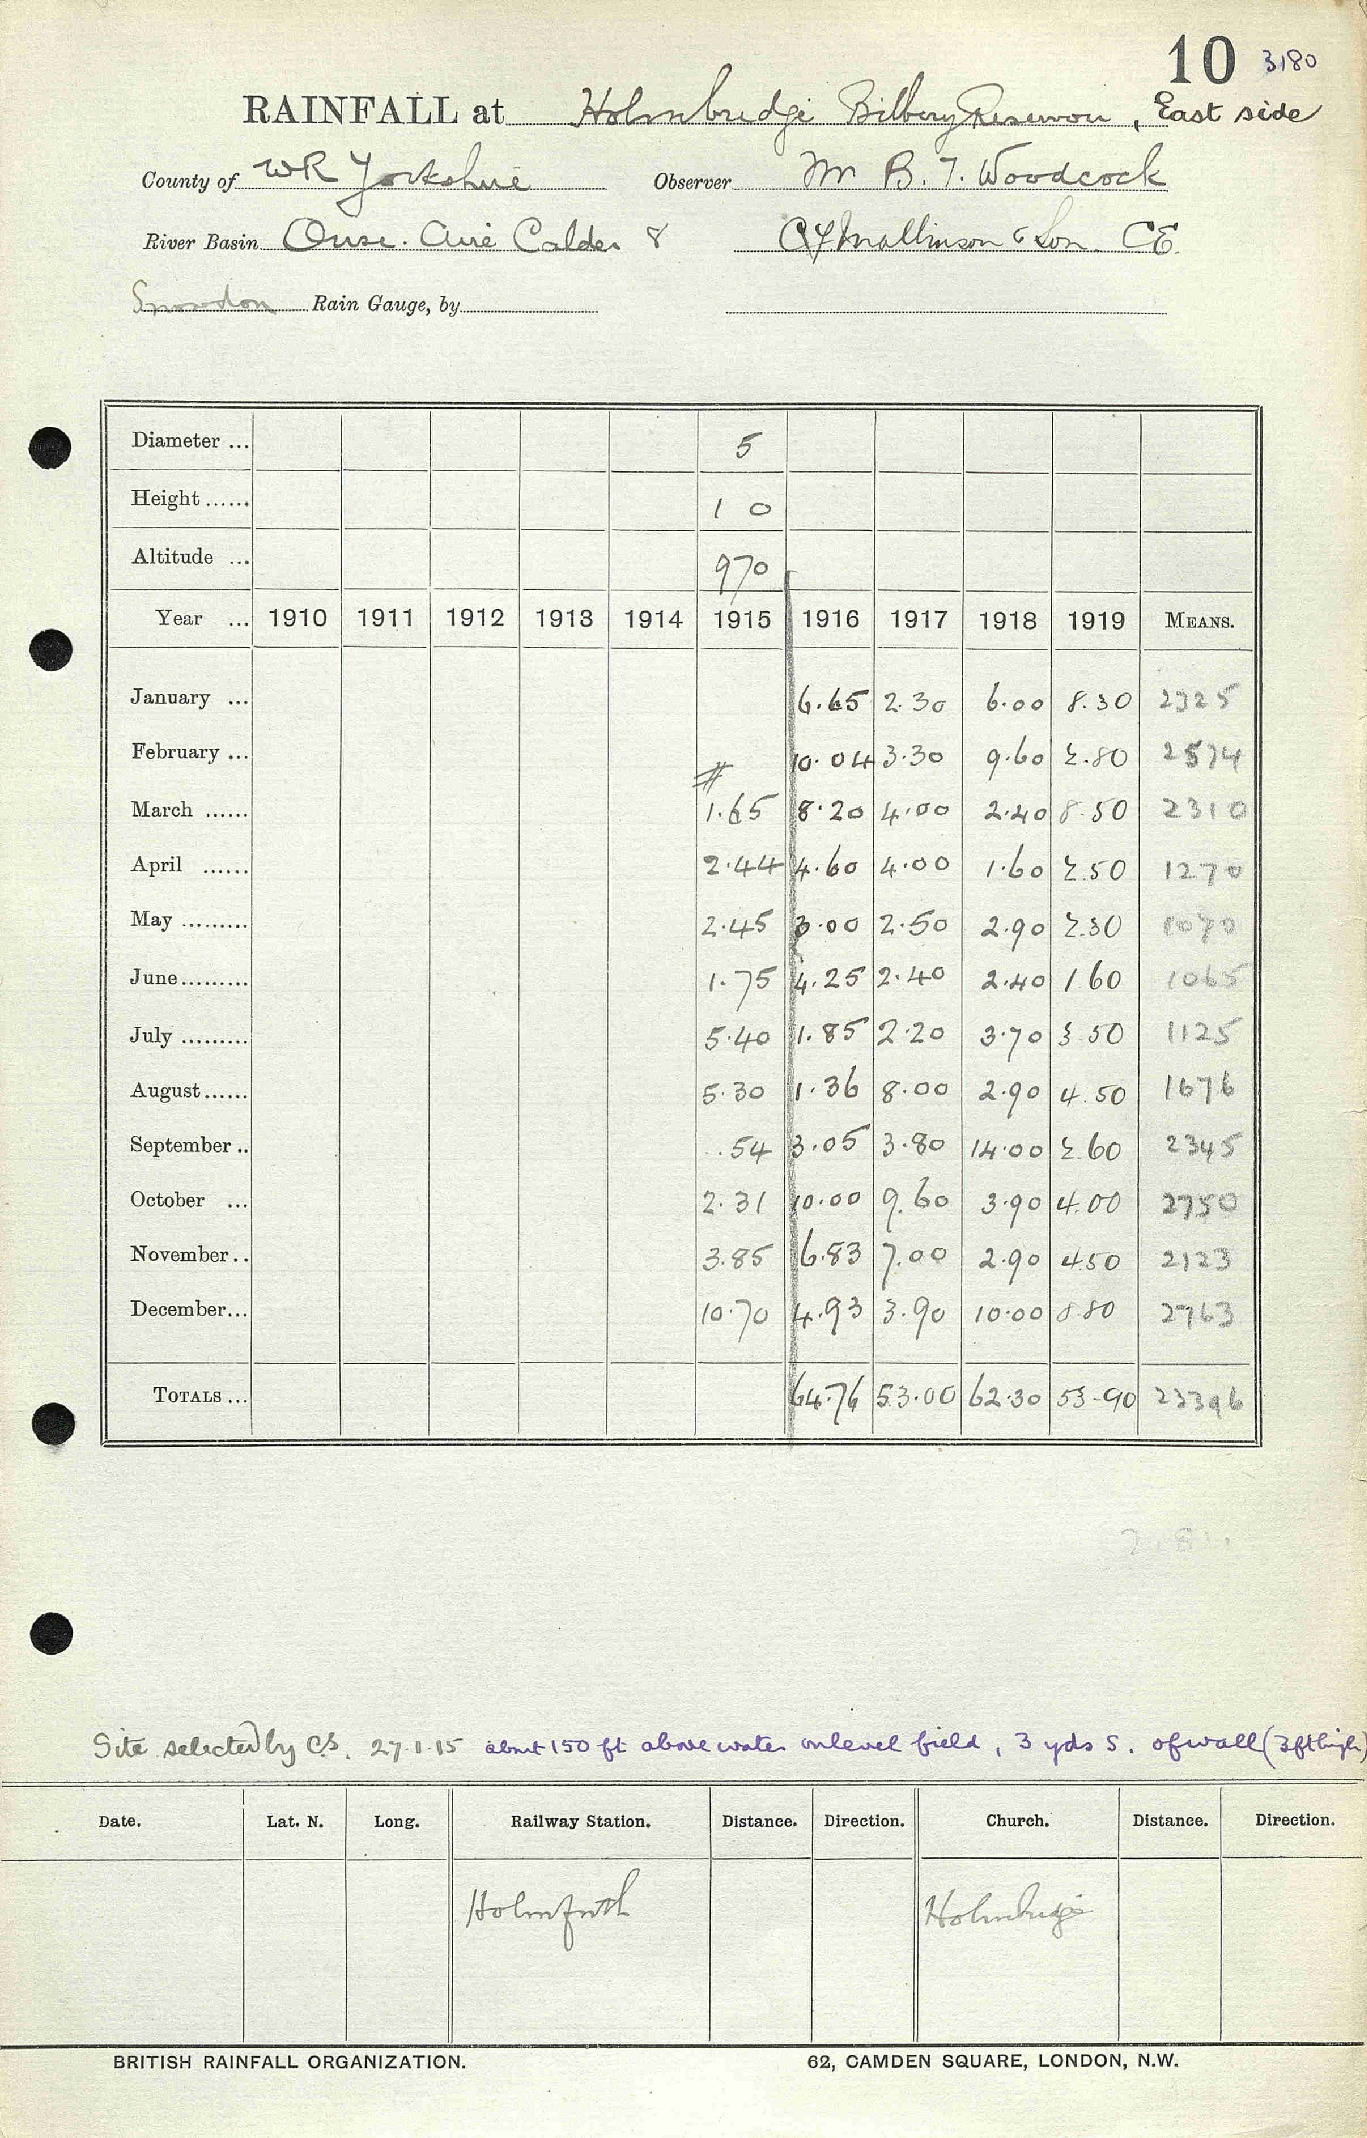 10 3180
RAINFALL at Holmbridge Bilberry Reservoir, East side
County of WR Yorkshire Observer Mr B. T. Woodcock
River Basin Ouse. Aire Calder 8 Mallinson & Son. CE.
Snowdon Rain Gauge, by
Diameter ... 5
Height ...... 1 0
Altitude ... 970
Year ... 1910 1911 1912 1913 1914 1915 1916 1917 1918 1919 MEANS.
January ... 6.65 2.30 6.00 8.30 2325
February ... 10.04 3.30 9.60 2.80 2574
March ...... # 1.65 8.20 4.00 2.40 8.50 2310
April ...... 2.44 4.60 4.00 1.60 2.50 1270
May ......... 2.45 3.00 2.50 2.90 2.30 1070
June......... 1.75 4.25 2.40 2.40 1 60 1065
July ......... 5.40 1.85 2.20 3.70 3 50 1125
August...... 5.30 1.36 8.00 2.90 4.50 1676
September .. .54 3.05 3.80 14.00 2.60 2345
October ... 2.31 10.00 9.60 3.90 4.00 2750
November .. 3.85 6.83 7.00 2.90 4.50 2123
December... 10.70 4.93 3.90 10.00 8.80 2763
TOTALS ... 64.76 53.00 62.30 53.90 23396
Site selected by C.S. 27.1.15 about 150 ft above water on level field, 3 yds S. of wall (3ft high)
Date. Lat. N. Long. Railway Station. Distance. Direction. Church. Distance. Direction.
Holmfirth Holmbridge
BRITISH RAINFALL ORGANIZATION. 62, CAMDEN SQUARE, LONDON, N.W.